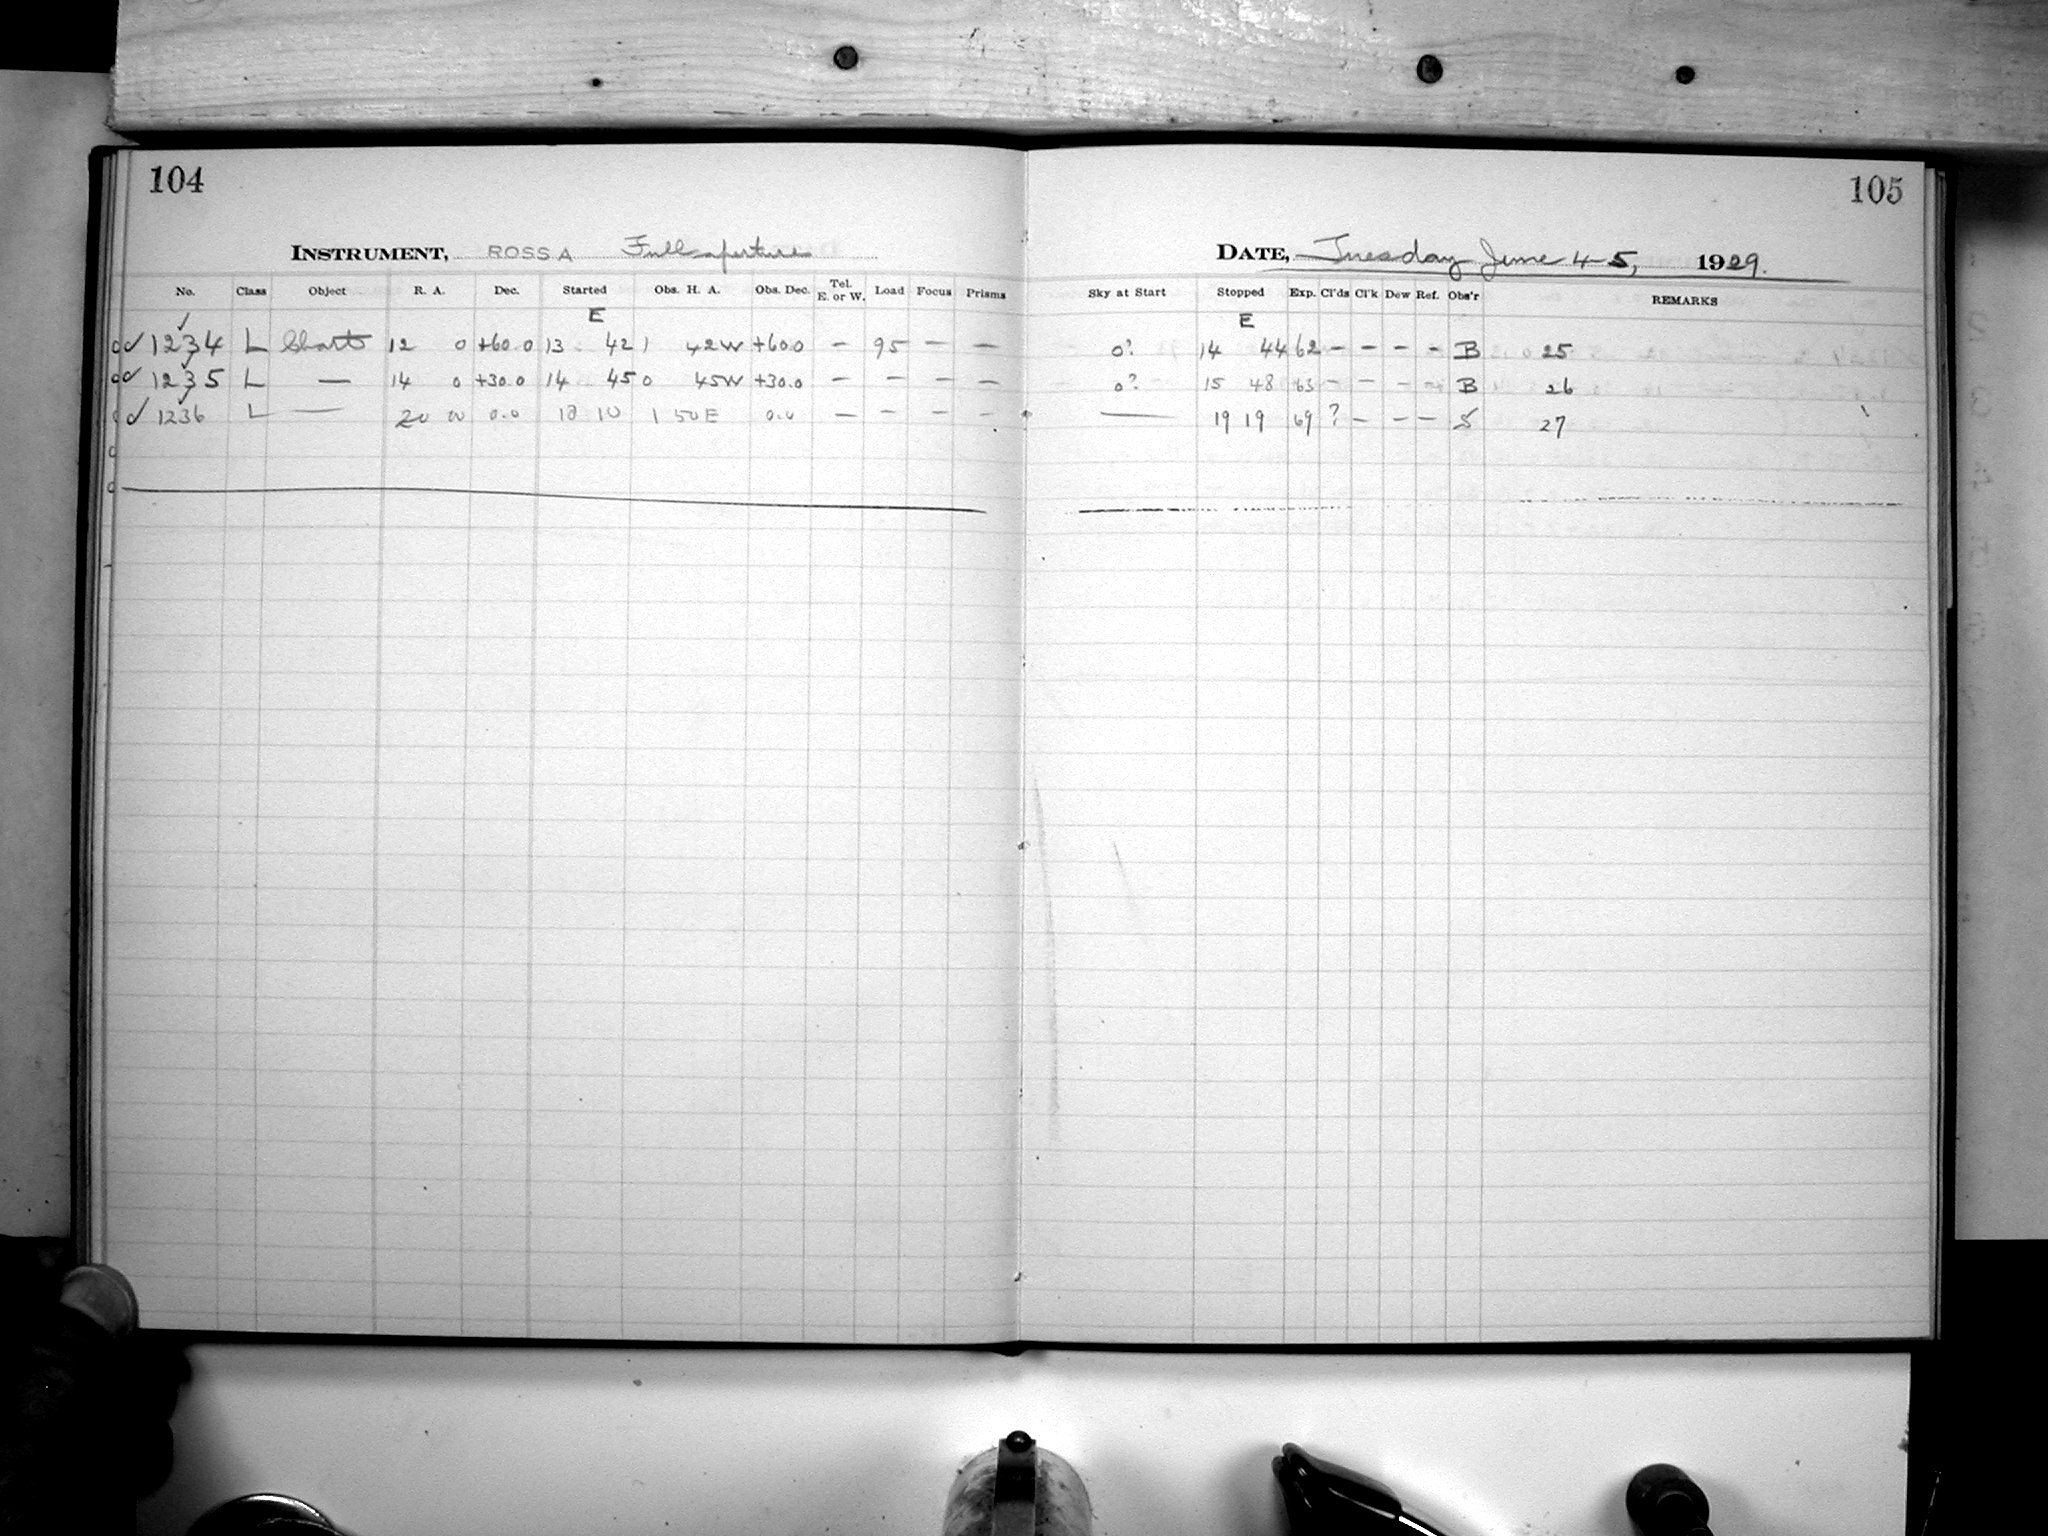 104
INSTRUMENT, ROSS A Full aperture
No. Class Object R. A. Dec. Started Obs. H. A. Obs. Dec. Tel. E. or W. Load Focus Prisms
E
✓ 1234 L Chart 12 0 +60.0 13 42 1 42W +60.0 — 95 — —
✓ 1235 L — 14 0 +30.0 14 45 0 45W +30.0 — — — —
✓ 1236 L — 20 00 0.0 18 10 1 50E 0.0 — — — —
105
DATE, Tuesday June 4-5, 1929.
Sky at Start Stopped Exp. Cl'ds Cl'k Dew Ref. Obs'r REMARKS
E
0? 14 44 62 — — — — B 25
0? 15 48 63 — — — — B 26
— 19 19 69 ? — — — S 27